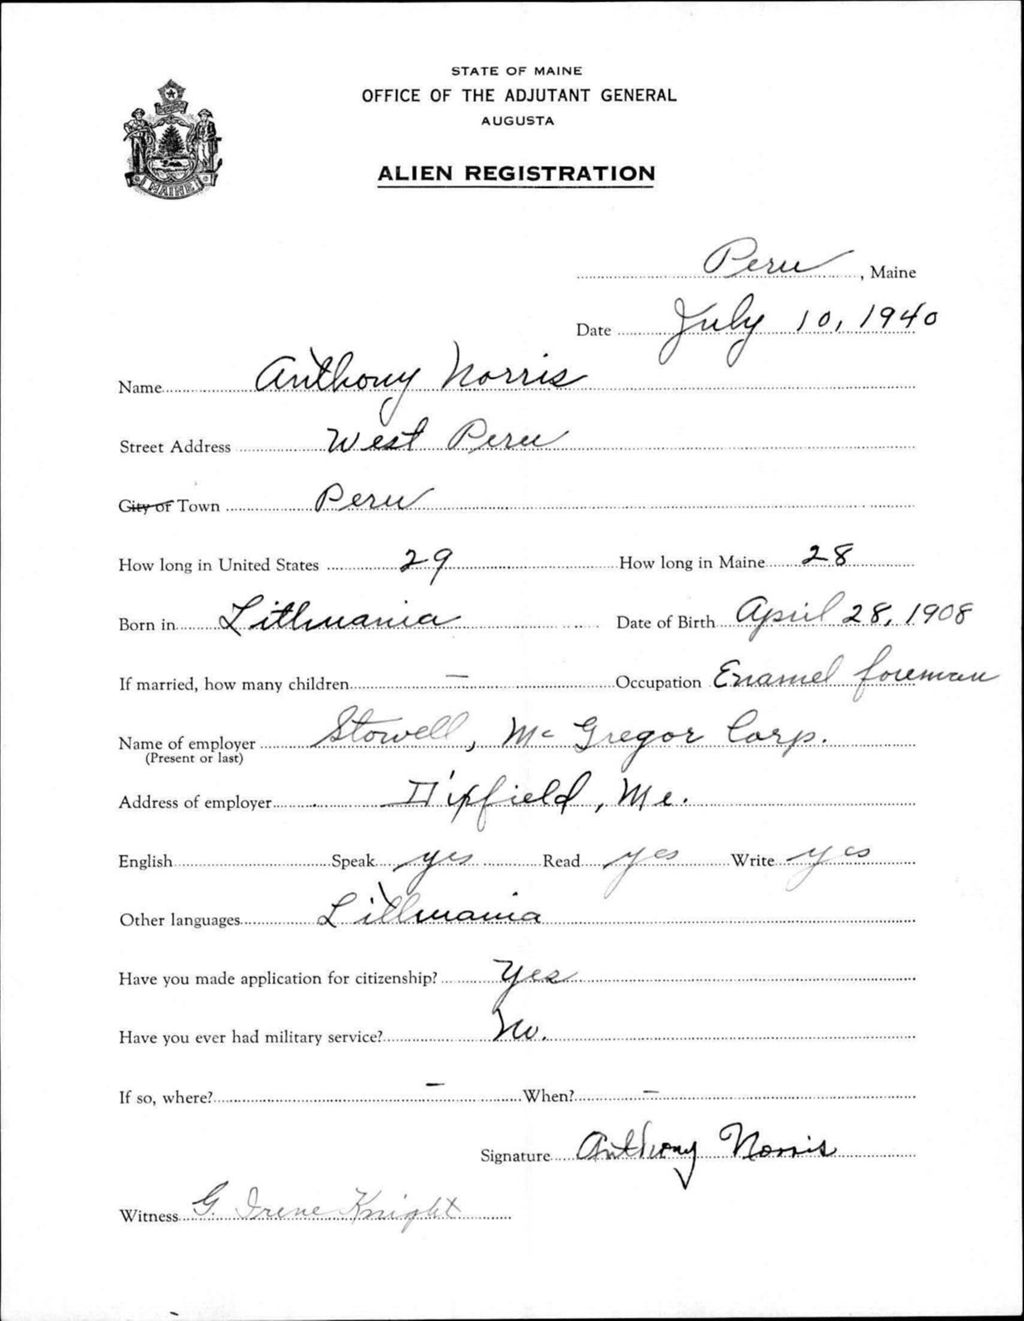 STATE OF MAINE
OFFICE OF THE ADJUTANT GENERAL
AUGUSTA
ALIEN REGISTRATION
MAINE
Peru, Maine
Date July 10, 1940
Name Anthony Norris
Street Address West Peru
City or Town Peru
How long in United States 29 How long in Maine 28
Born in Lithuania Date of Birth April 28, 1908
If married, how many children — Occupation Enamel foreman
Name of employer Stowell, McGregor Corp.
(Present or last)
Address of employer Dixfield, Me.
English Speak yes Read yes Write yes
Other languages Lithuania
Have you made application for citizenship? Yes
Have you ever had military service? No.
If so, where? — When? —
Signature Anthony Norris
Witness G. Irene Knight